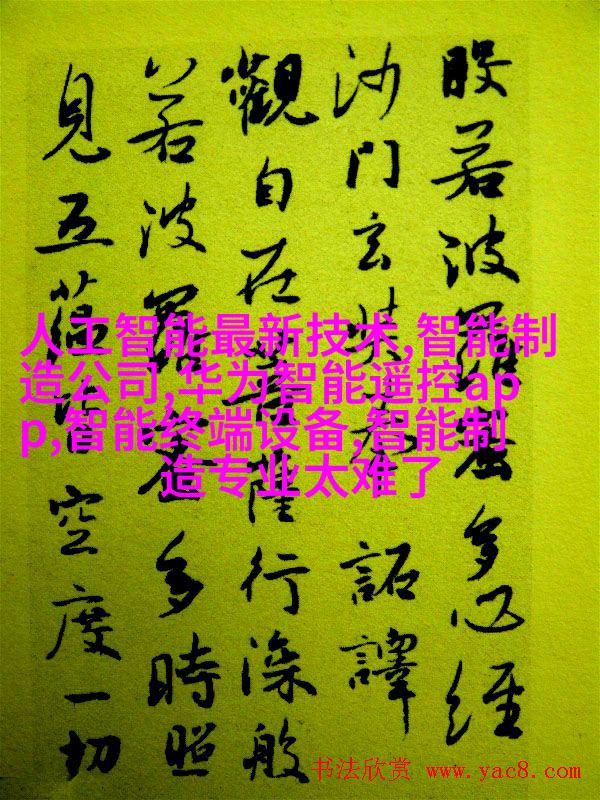 般若波羅蜜多心經
沙門玄奘奉 詔譯
觀自在菩薩行深般
若波羅蜜多時照
見五蘊皆空度一切
人工智能最新技术,智能制
造公司,华为智能遥控ap
p,智能终端设备,智能制
造专业太难了
书法欣赏 www.yac8.com